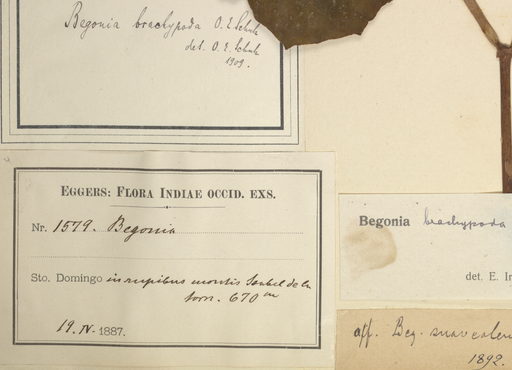 Begonia brachypoda O. E. Schulz
det. O. E. Schulz
1909.
EGGERS: FLORA INDIAE OCCID. EXS.
Nr. 1579. Begonia
Sto. Domingo in rupibus montis Isabel de la
torr. 670 m
19. IV. 1887.
Begonia brachypoda
det. E. Ir
aff. Beg. suaveolen
1892.